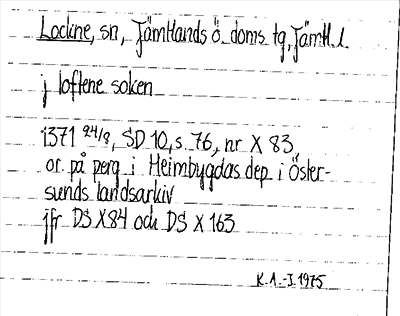 Lockne, sn, Jämtlands ö. doms. tg, Jämtl. l.
j loftene soken
1371 24/8, SD 10, s. 76, nr X 83,
or. på perg. i Heimbygdas dep. i Öster-
sunds landsarkiv
jfr DS X 84 och DS X 163
K.A.-J. 1975